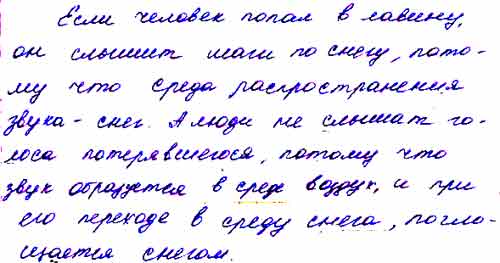 Если человек попал в лавину,
он слышит шаги по снегу, пото-
му что среда распространения
звука - снег. А люди не слышат го-
лоса потерявшегося, потому что
звук образуется в среде воздух, и при
его переходе в среду снега, погло-
щается снегом.